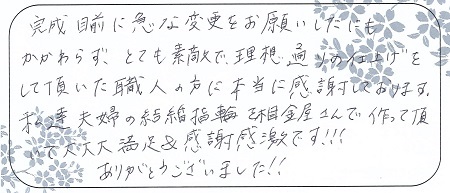 完成目前に急な変更をお願いしたにも
かかわらず、とても素敵で、理想通りの仕上げを
して頂いた職人の方に本当に感謝しております。
私達夫婦の結婚指輪を相金屋さんで作って頂
いて大大大満足&感謝感激です!!!
ありがとうございました!!